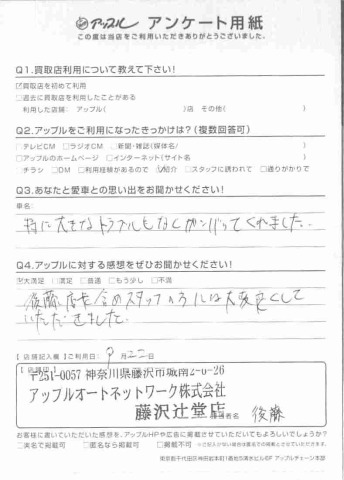 アップル アンケート用紙
この度は当店をご利用いただきありがとうございました。
Q1.買取店利用について教えて下さい!
☑買取店を初めて利用
□過去に買取店を利用したことがある
利用した店舗: アップル( )店 その他( )
Q2.アップルをご利用になったきっかけは?(複数回答可)
□テレビCM □ラジオCM □新聞・雑誌(媒体名/ )
□アップルのホームページ □インターネット(サイト名 )
□チラシ □DM □利用経験があるので ☑紹介 □スタッフに誘われて □通りがかりで
Q3.あなたと愛車との思い出をお聞かせください!
車名:
特に大きなトラブルもなくがんばってくれました。
Q4.アップルに対する感想をぜひお聞かせください!
☑大満足 □満足 □普通 □もう少し □不満
後藤店長含めスタッフの方には大変良くして
いただきました。
【店舗記入欄】ご利用日: 9月22日
〒251-0057 神奈川県藤沢市城南2-6-26
アップルオートネットワーク株式会社
藤沢辻堂店
担当者名 後藤
お客様に書いていただいた感想を、アップルHPや広告に掲載させていただいてもよろしいでしょうか?
□実名で掲載可 □匿名なら掲載可 □掲載不可